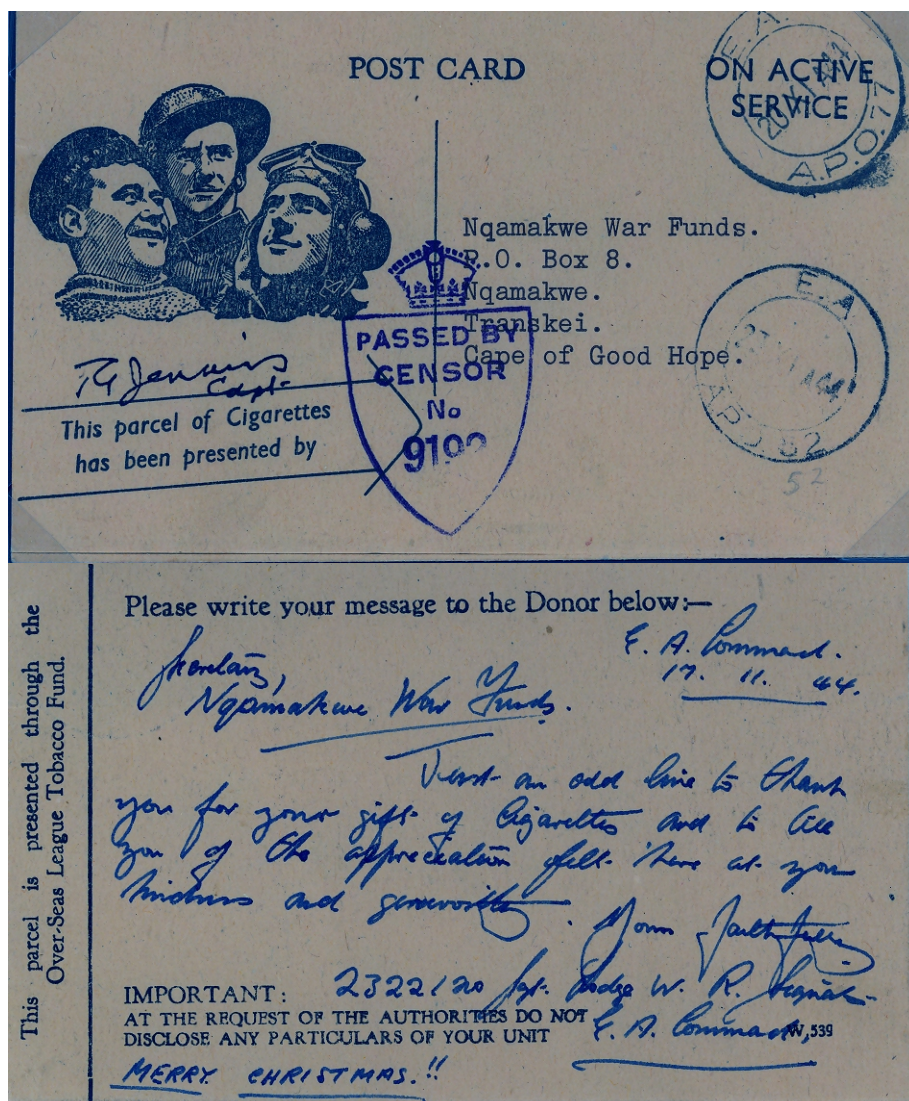 POST CARD
ON ACTIVE
SERVICE
E.A.
A.P.O.77
Nqamakwe War Funds.
P.O. Box 8.
Nqamakwe.
Transkei.
Cape of Good Hope.
PASSED BY
CENSOR
No
E.A.
A.P.O. 52
52
Capt.
This parcel of Cigarettes
has been presented by
This parcel is presented through the
Over-Seas League Tobacco Fund.
Please write your message to the Donor below:—
E. A. Command.
17. 11. 44.
Secretary,
Nqamakwe War Funds.
Just an odd line to thank
you for your gift of Cigarettes and to
you of the appreciation felt here at your
kindness and generosity.
Yours faithfully
IMPORTANT: 2322120 Sgt. W. R. Signals
AT THE REQUEST OF THE AUTHORITIES DO NOT
DISCLOSE ANY PARTICULARS OF YOUR UNIT
E. A. Command W,539
MERRY CHRISTMAS.!!